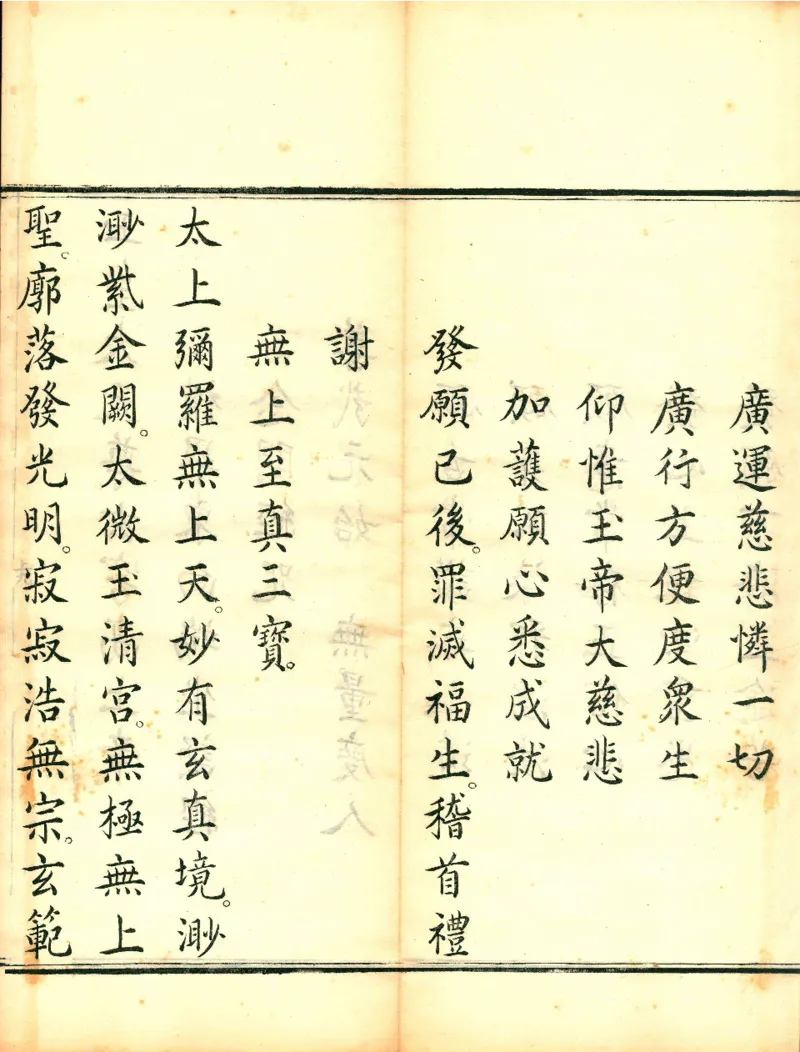 廣運慈悲憐一切
廣行方便度衆生
仰惟玉帝大慈悲
加護願心悉成就
發願已後。罪滅福生。稽首禮
謝
無上至真三寶。
太上彌羅無上天。妙有玄真境。渺
渺紫金闕。太微玉清宮。無極無上
聖。廓落發光明。寂寂浩無宗。玄範